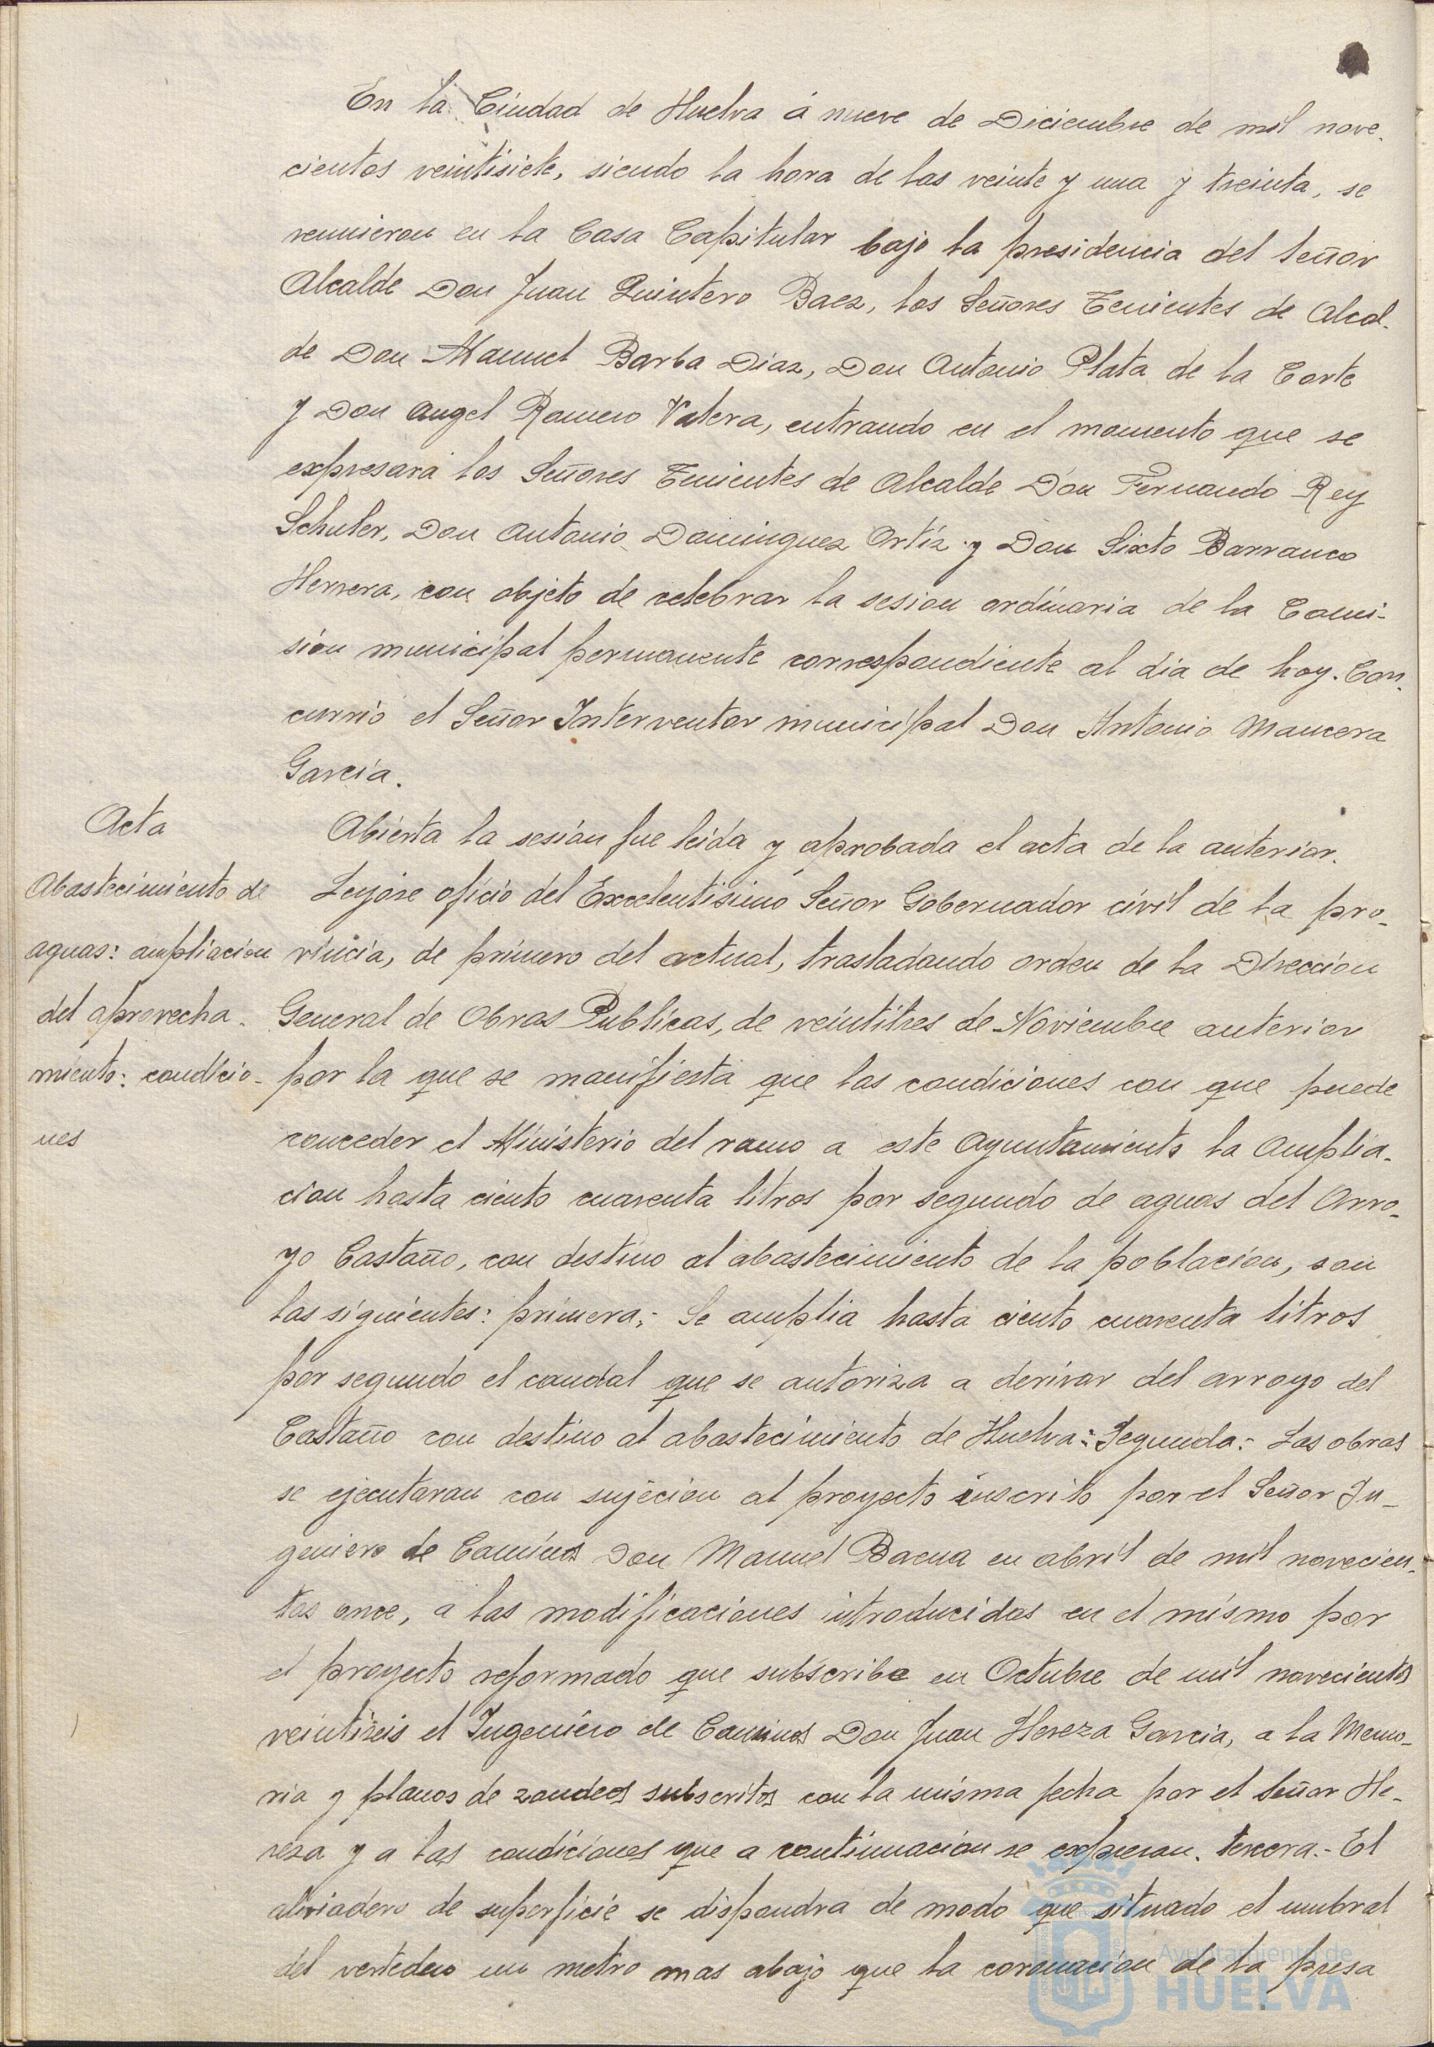 En la Ciudad de Huelva á nueve de Diciembre de mil nove-
cientos veintisiete, siendo la hora de las veinte y una y treinta, se
reunieron en la Casa Capitular bajo la presidencia del Señor
Alcalde Don Juan Quintero Baez, los Señores Tenientes de Alcal-
de Don Manuel Barba Diaz, Don Antonio Plata de la Corte
y Don Angel Romero Valera, entrando en el momento que se
expresará los Señores Tenientes de Alcalde Don Fernando Rey
Schuler, Don Antonio Dominguez Ortíz y Don Sixto Barranco
Herrera, con objeto de celebrar la sesion ordinaria de la Comi-
sión municipal permanente correspondiente al dia de hoy. Con-
currió el Señor Interventor municipal Don Antonio Mancera
García.
Acta
Abierta la sesión fue leída y aprobada el acta de la anterior.
Abastecimiento de
aguas: ampliacion
del aprovecha-
miento: condicio-
nes
Leyóse oficio del Excelentisimo Señor Gobernador civil de la pro-
vincia, de primero del actual, trasladando orden de la Direccion
General de Obras Publicas, de veintitres de Noviembre anterior
por la que se manifiesta que las condiciones con que puede
conceder el Ministerio del ramo a este Ayuntamiento la Amplia-
cion hasta ciento cuarenta litros por segundo de aguas del Arro-
yo Castaño, con destino al abastecimiento de la poblacion, son
las siguientes: primera.- Se amplia hasta ciento cuarenta litros
por segundo el caudal que se autoriza a derivar del arroyo del
Castaño con destino al abastecimiento de Huelva: Segunda.- Las obras
se ejecutaran con sujecion al proyecto inscrito por el Señor In-
geniero de Caminos Don Manuel Baena en abril de mil novecien-
tos once, a las modificaciones introducidas en el mismo por
el proyecto reformado que subscribe en Octubre de mil novecientos
veintiseis el Ingeniero de Caminos Don Juan Hereza Garcia, a la Memo-
ria y planos de sondeos subscritos con la misma fecha por el Señor He-
reza y a las condiciones que a continuación se expresan. tercera.- El
aliviadero de superficie se dispondra de modo que situado el umbral
del vertedero un metro mas abajo que la coronación de la presa
Ayuntamiento de
HUELVA